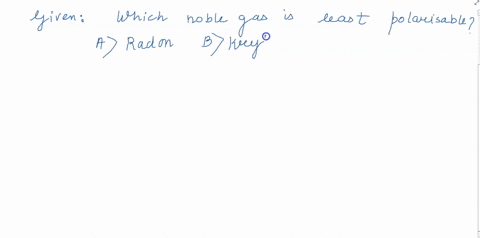 Given: Which noble gas is least polarisable?
A> Radon B> Kry